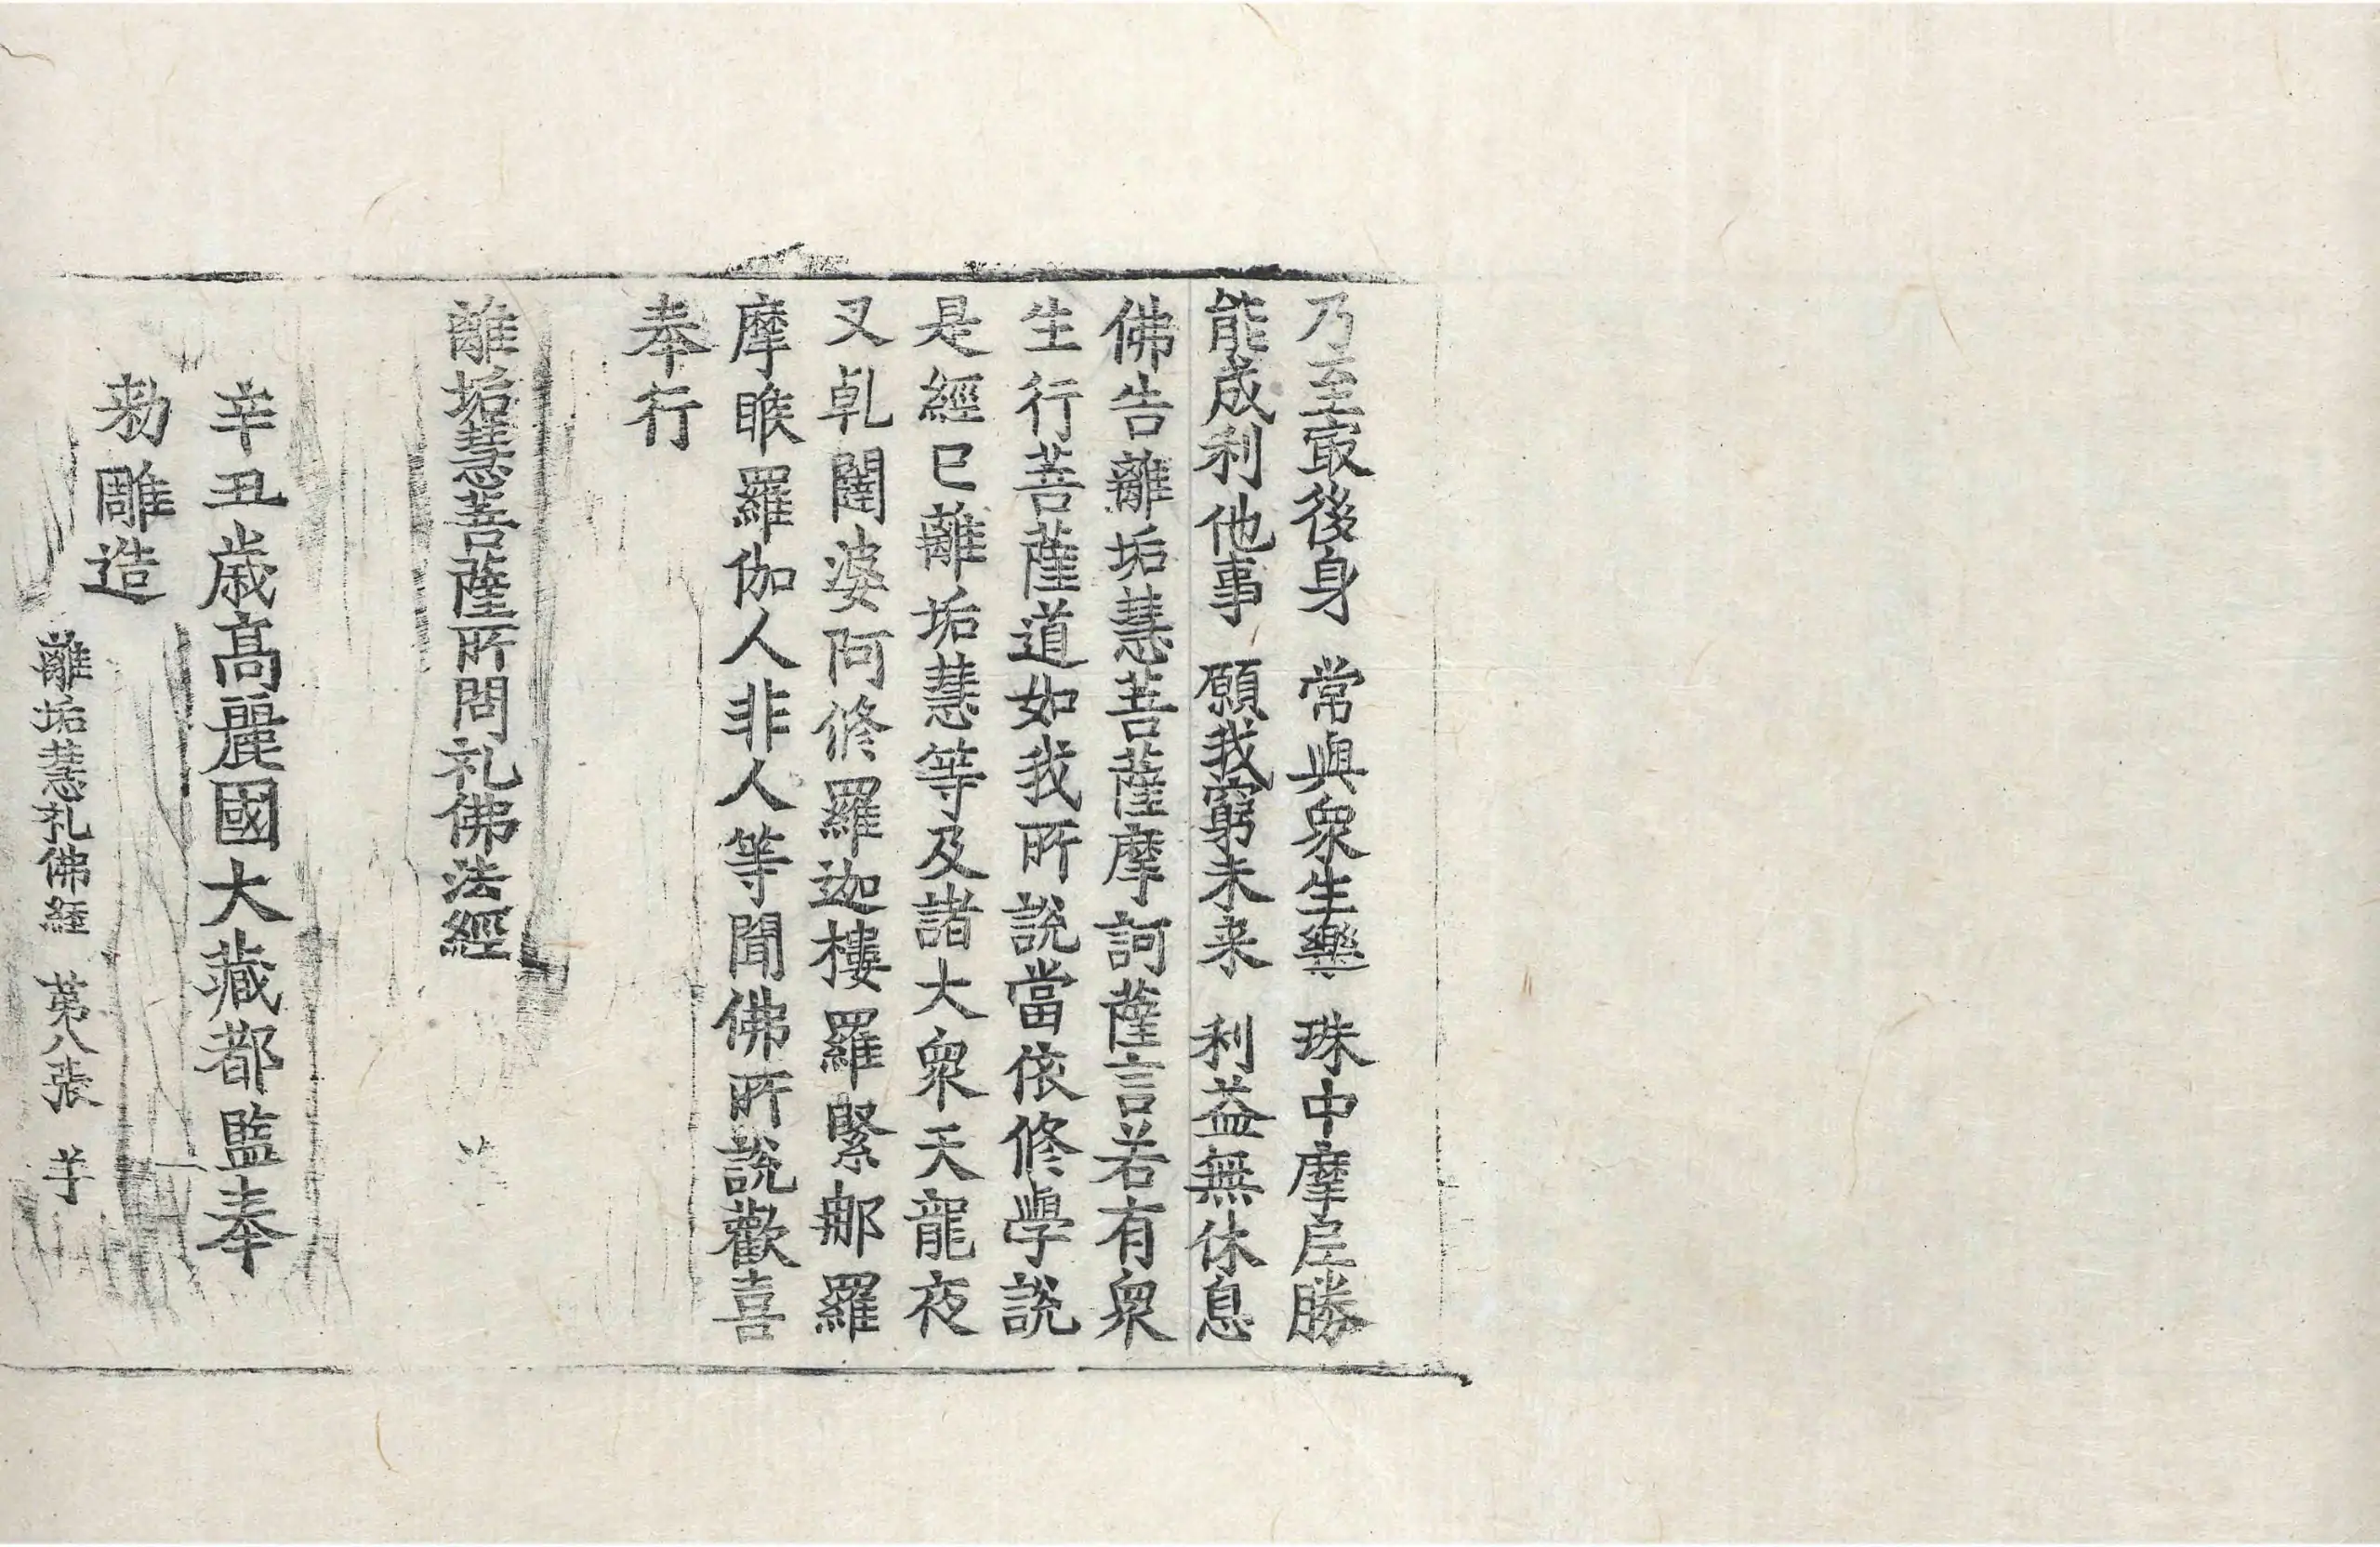 乃至㝡後身　常與衆生樂　珠中摩𡰱勝
能成利他事　願我窮未来　利益無休息
佛告離垢慧菩薩摩訶薩言若有衆
生行菩薩道如我所說當依修學說
是經已離垢慧等及諸大衆天龍夜
叉乹闥婆阿修羅迦樓羅緊那羅
摩睺羅伽人非人等聞佛所說歡喜
奉行
離垢慧菩薩所問礼佛法經
辛丑歳高麗國大藏都監奉
勑雕造
離垢慧礼佛經　第八張　羊